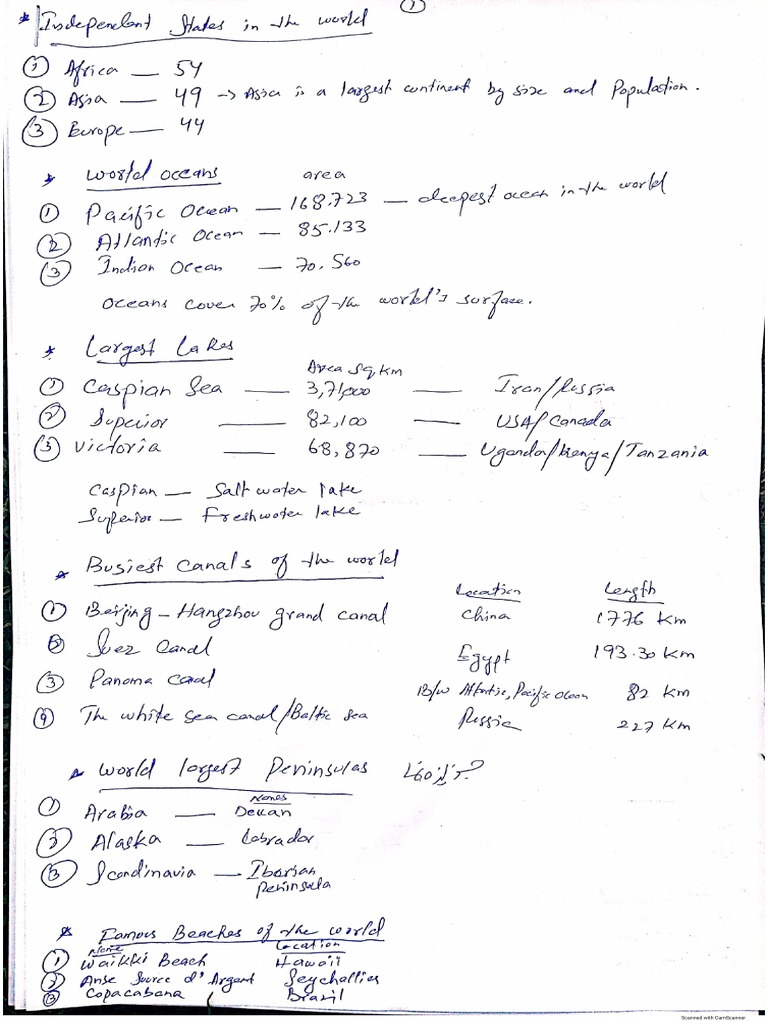 ①
* Independent States in the world
① Africa — 54
② Asia — 49 → Asia is a largest continent by size and Population.
③ Europe — 44
* World oceans area
① Pacific Ocean — 168.723 — deepest ocean in the world
② Atlantic Ocean — 85.133
③ Indian Ocean — 70.560
Oceans cover 70% of the world's surface.
* Largest Lakes
Area Sq,km
① Caspian Sea — 3,71,000 — Iran/Russia
② Superior — 82,100 — USA/Canada
③ Victoria — 68,870 — Uganda/Kenya/Tanzania
Caspian — Salt water lake
Superior — Freshwater lake
* Busiest Canals of the world
Location Length
① Beijing - Hangzhou grand canal China 1776 Km
② Suez Canal Egypt 193.30 Km
③ Panama canal B/w Atlantic, Pacific Ocean 82 Km
④ The white sea canal/Baltic sea Russia 227 Km
* World largest Peninsulas
Names
① Arabia — Deccan
② Alaska — Labrador
③ Scandinavia — Iberian
Peninsula
* Famous Beaches of the world
Name Location
① Waikki Beach Hawaii
② Anse Source d'Argent Seychallies
③ Copacabana Brazil
Scanned with CamScanner